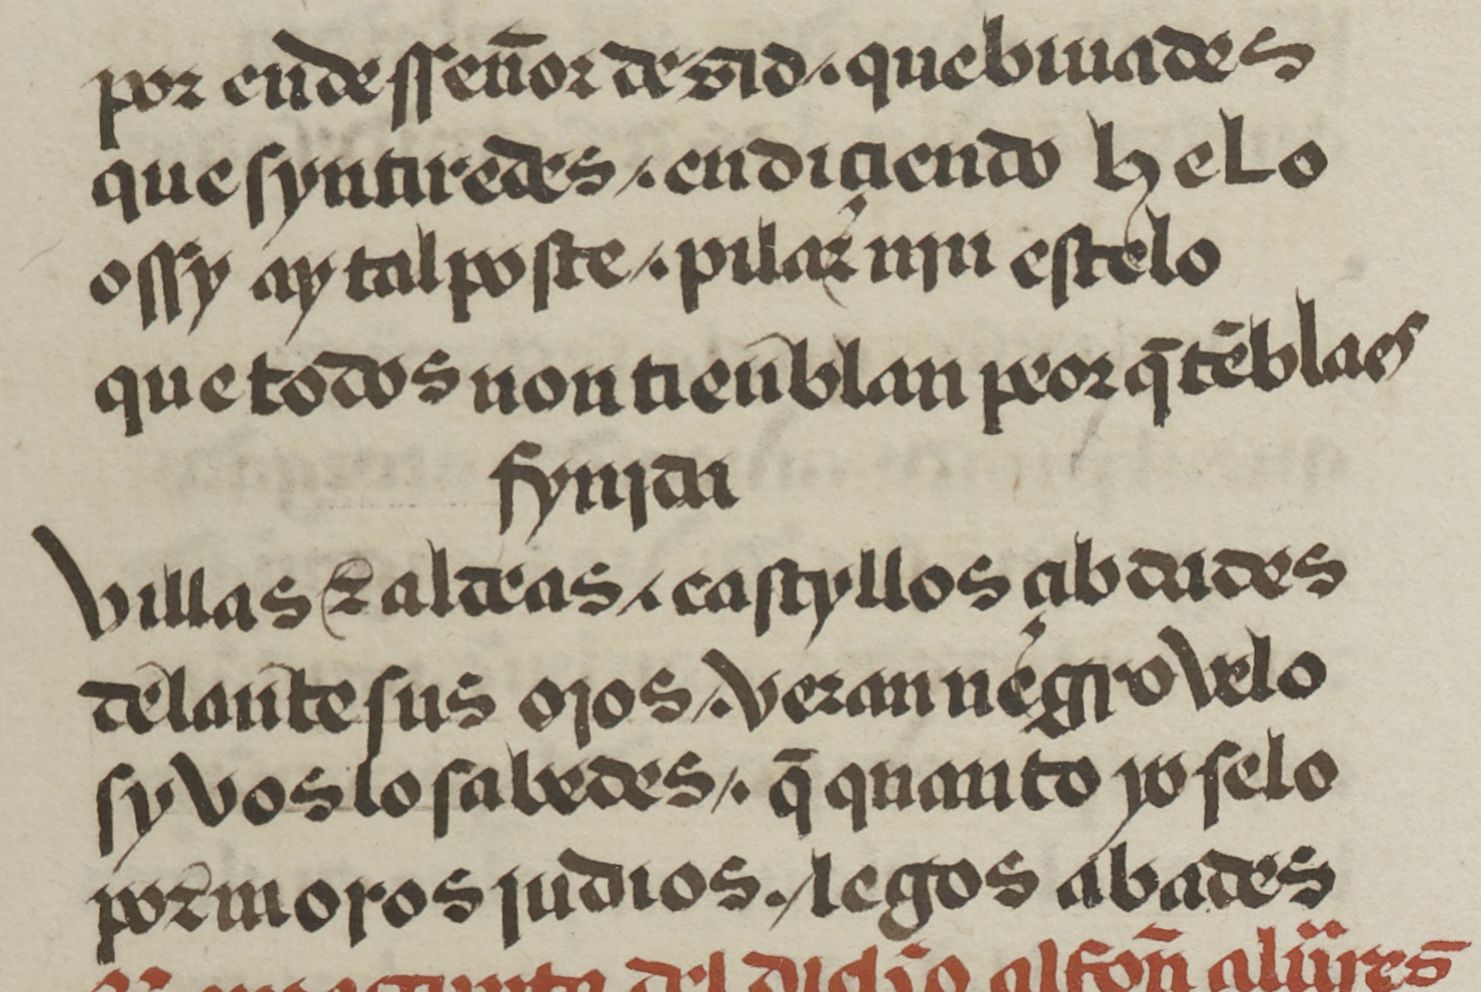 por ende sseñor de grad . que biuades
que syntiredes /. en diçiendo helo
o ssy ay tal poste /. pilar nin estelo
que todos non tienblan peor q̄ tēblaes
fynida
Villas ⁊ aldeas /. castyllos çibdades
delante sus ojos /. veran negro velo
sy vos lo sabedes /. q̄ quanto yo selo
por moros judios ./ legos abades
del dicho alfon̄ aluares